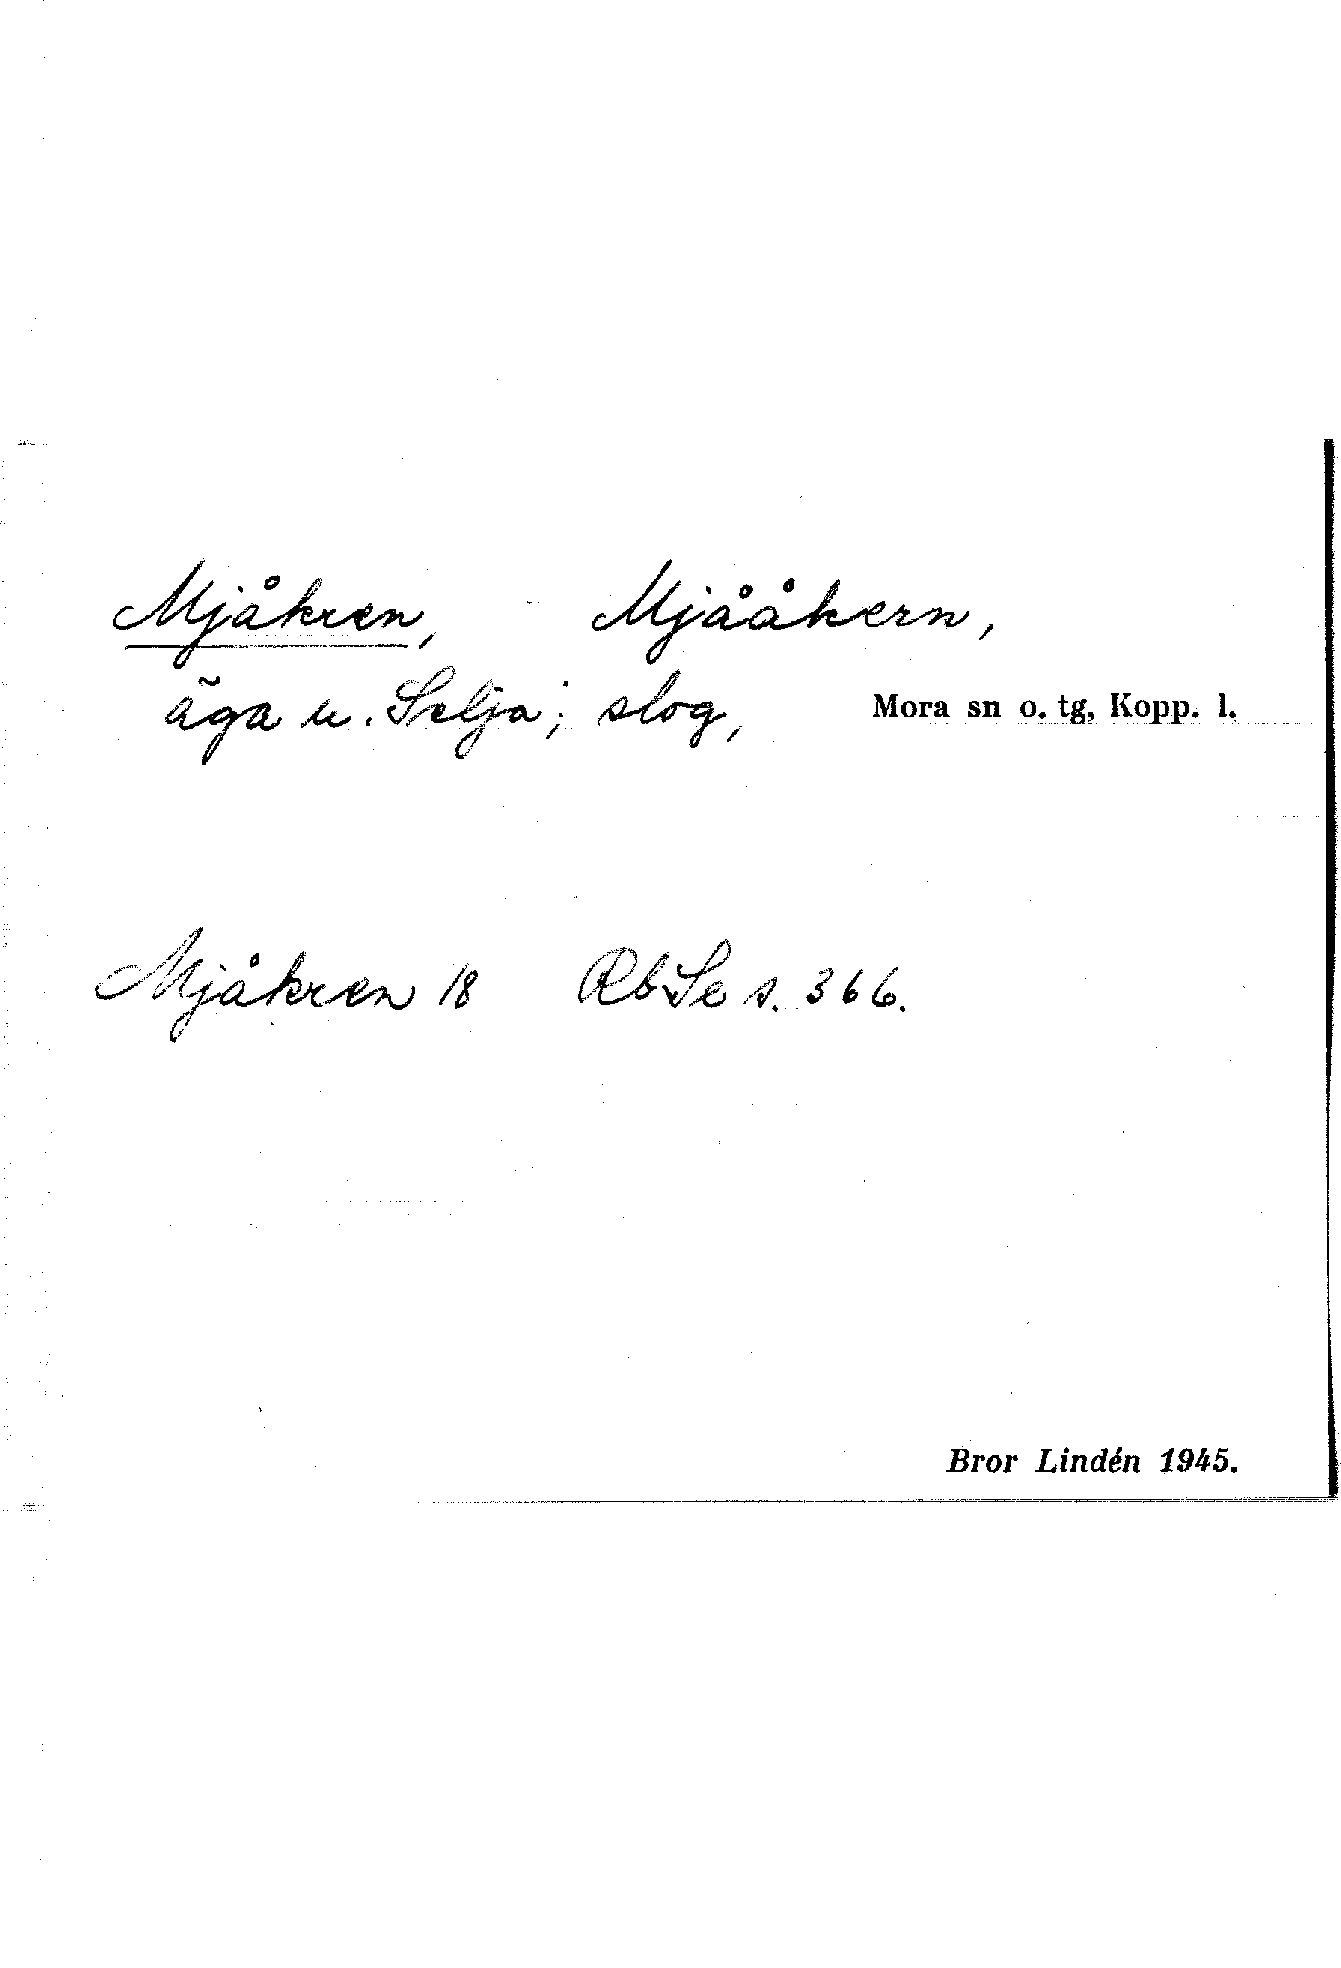 Mjåkren, Mjååkern,
äga u. Selja; slog, Mora sn o. tg, Kopp. l.
Mjåkren 18 ÆbSe s. 366.
Bror Lindén 1945.